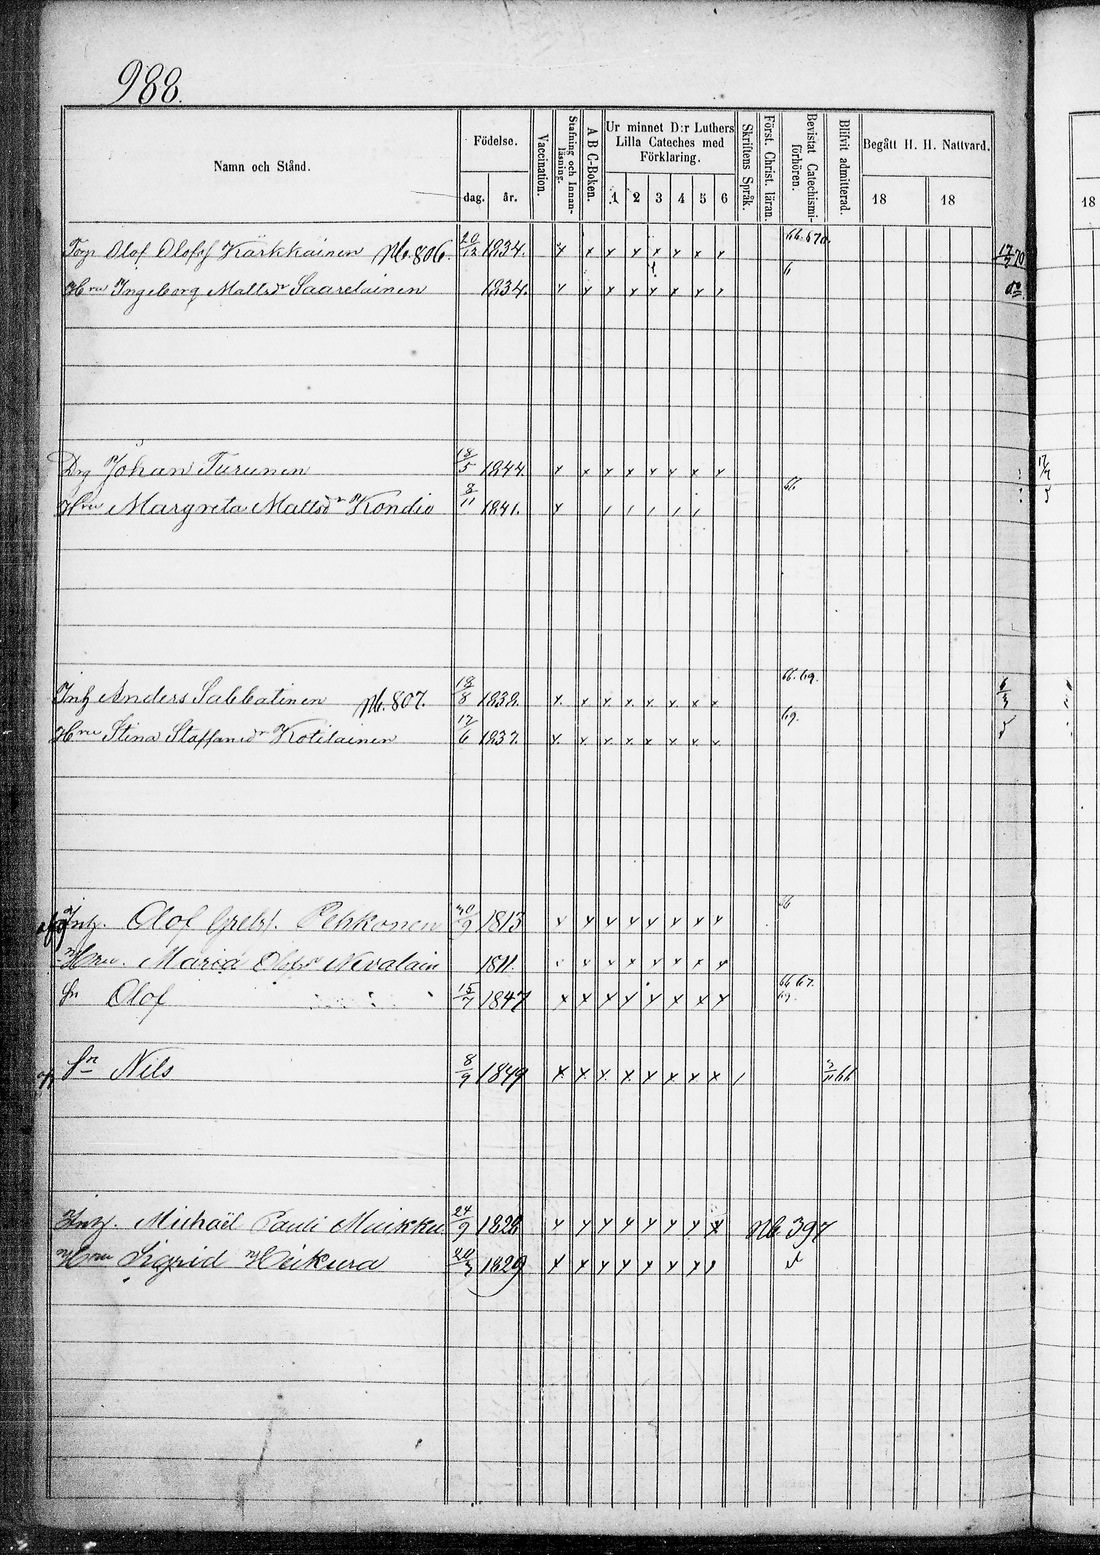 988.
Namn och Stånd.
Födelse.
dag. år.
Vaccination.
Stafning och Innanläsning.
A B C-Boken.
Ur minnet D:r Luthers
Lilla Cateches med
Förklaring.
1 2 3 4 5 6
Skriftens Språk.
Först. Christ. läran.
Bevistat Catechismiförhören.
Blifvit admitterad.
Begått H. H. Nattvard.
18 18
18
Olof Olofsf Kärkkainen № 806. 20/12 1834. x x x x x x x x 66.670. 17/7 70
Hru Ingeborg Mattsdr Saarelainen 1834. x x x x x x x x
Johan Turunen 18/5 1844. x x x x x x x x
Hru Margreta Mattsdr Kondie 8/11 1841. x 66.
Inh Anders Sabbatinen № 807. 18/8 1838. x x x x x x x x 66.69.
Hru Stina Staffansdr Kotilainen 17/6 1837. x x x x x x x x 69.
Inh. Olof Grelsf. Pehkonen 30/9 1813 v v v v v v v v
Hru. Maria Olofsdr Nevalain 1811.
Sn Olof 15/7 1847 x x x x x x x x 66 67.
69.
Sn Nils 8/9 1849 x x x x x x x x / 66
Inh. Michaël Pauli Muikku 24/9 1828 x x x x x x x x № 397
Hru Sigrid Heikura 1829 x x x x x x x